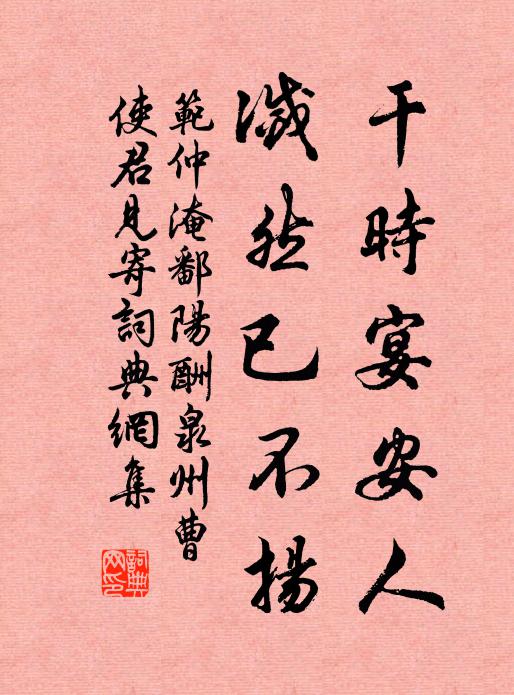 干時宴安人
滅然已不揚
範仲淹鄱陽酬泉州曹
使君見寄詞典網集
詞典
网印